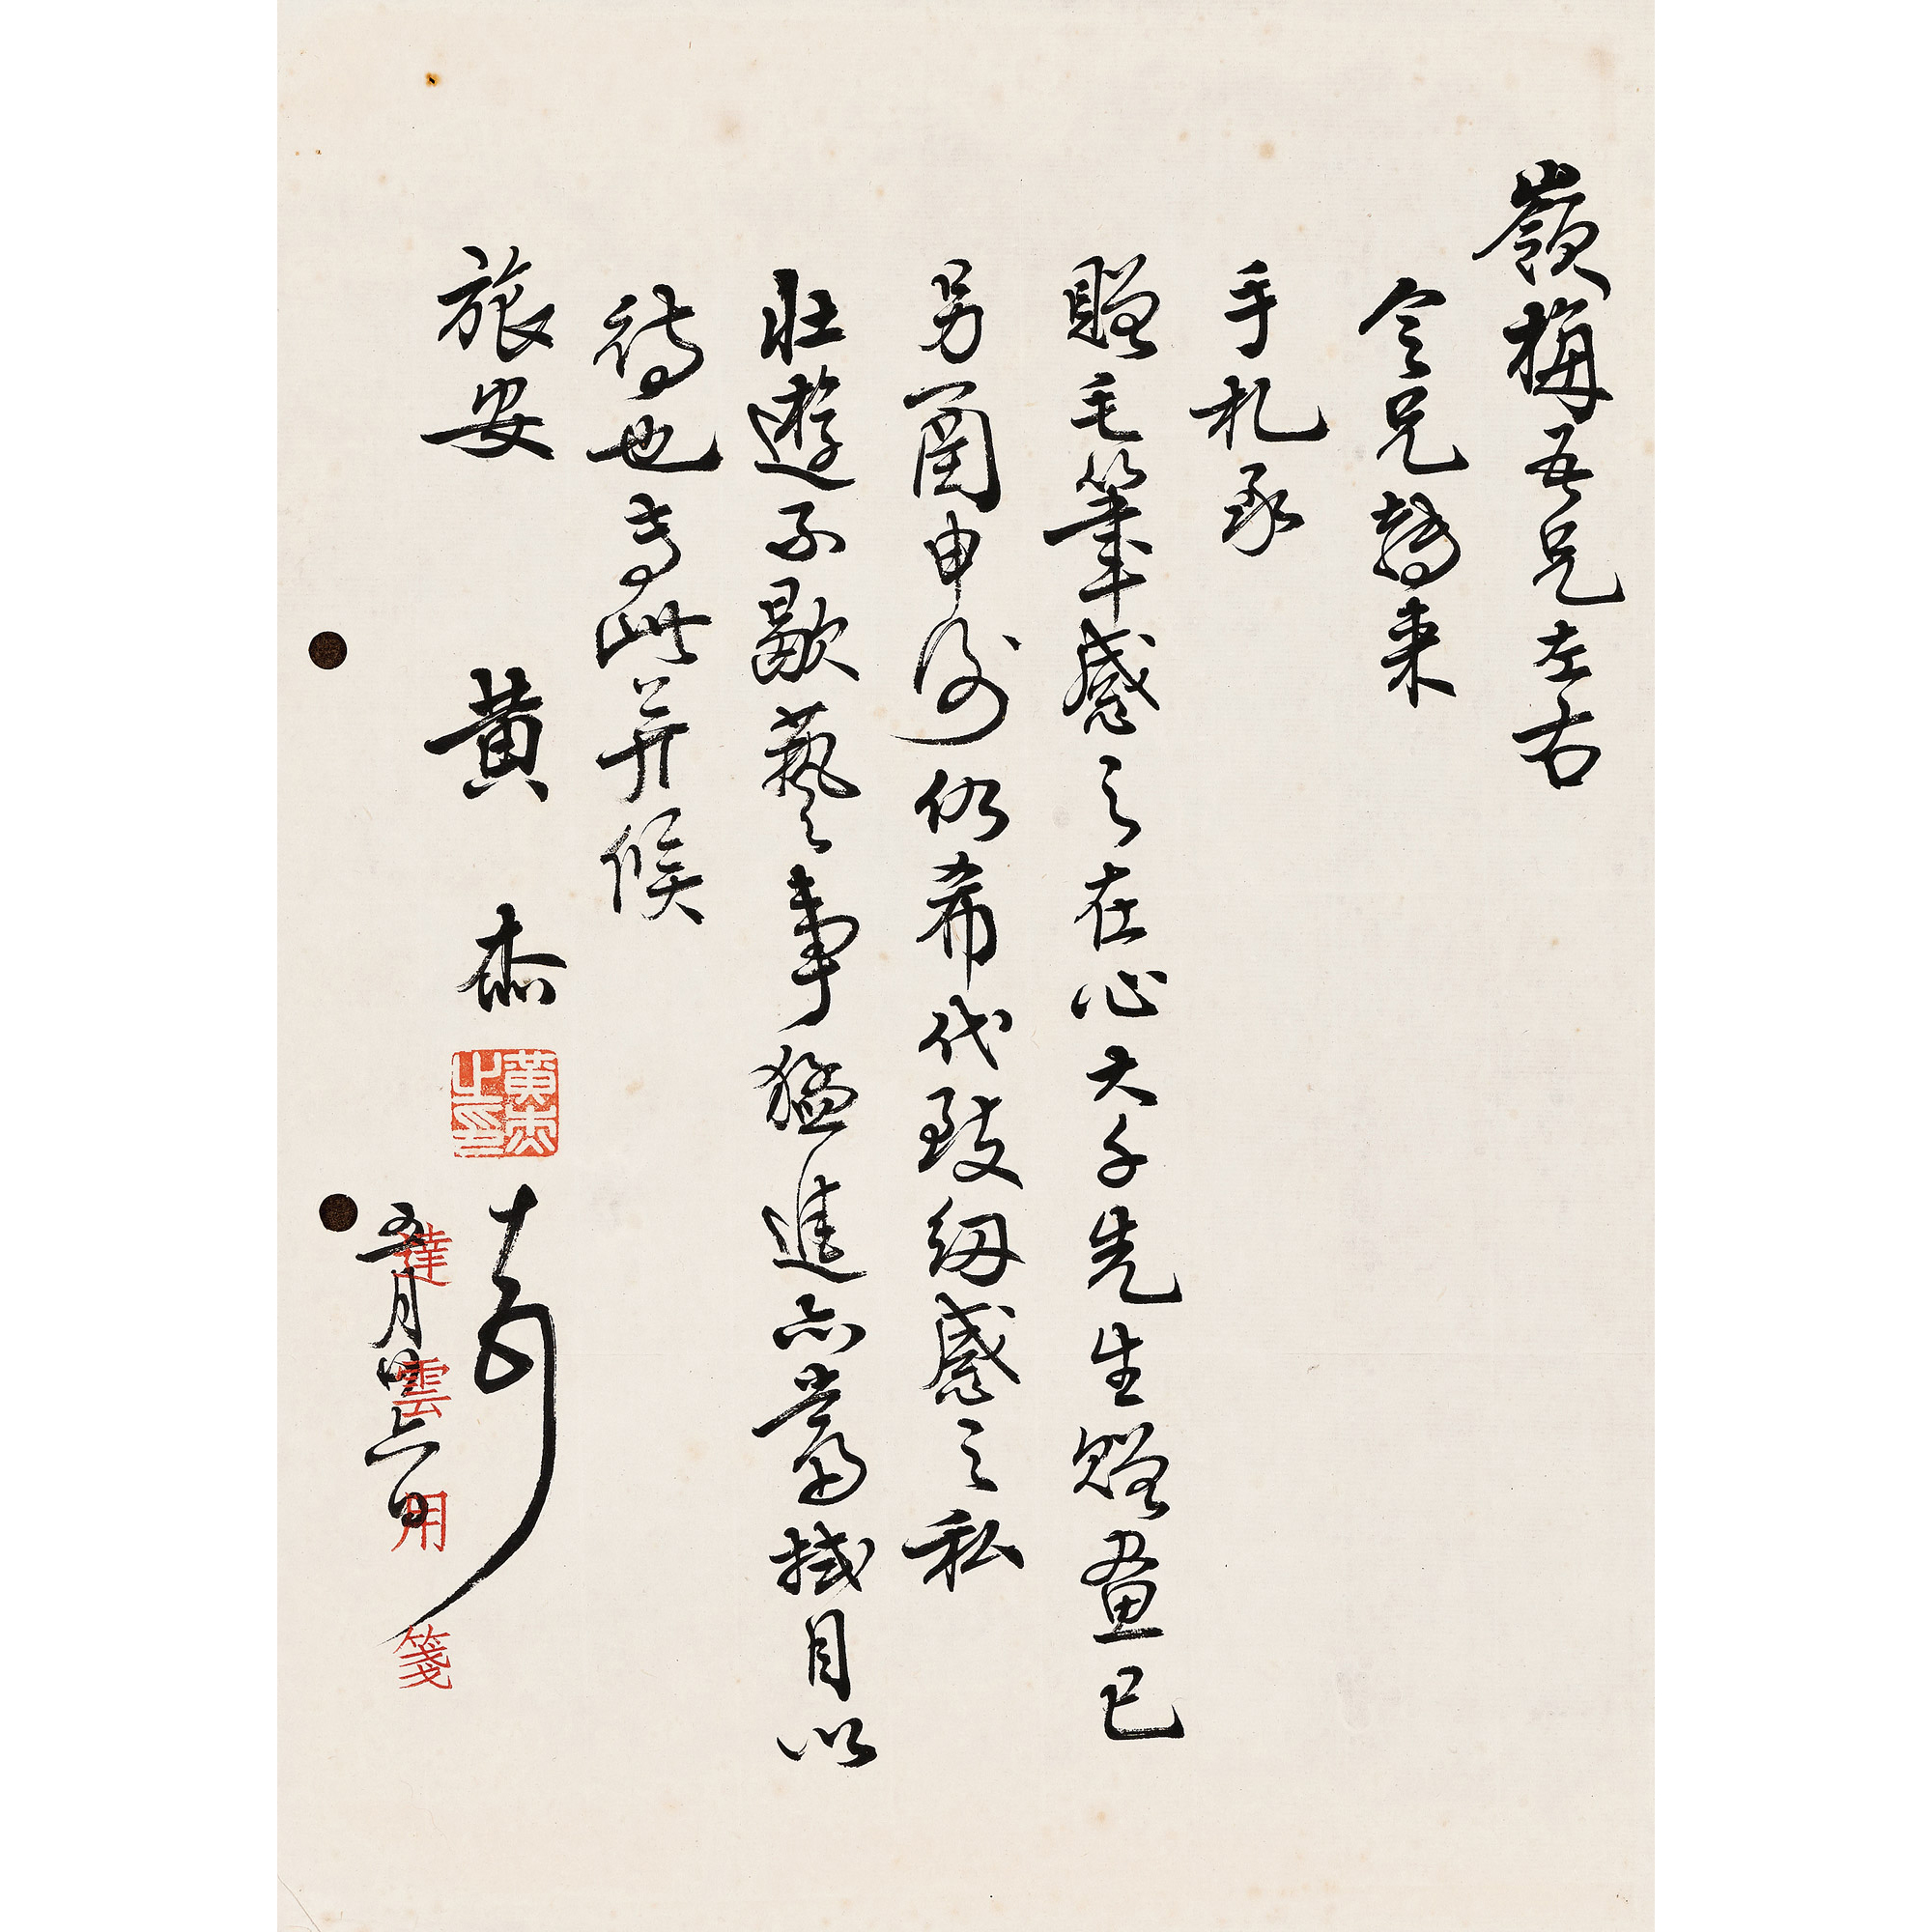 嶺梅吾兄左右
令兄轉来
手札承
贈毛筆感之在心大千先生贈畫已
另圅申謝仍希代致紉感之私
壯遊不歇藝事猛進亦當拭目以
待也專此并候
旅安 黃杰
黃杰之印
五月日
達雲用箋